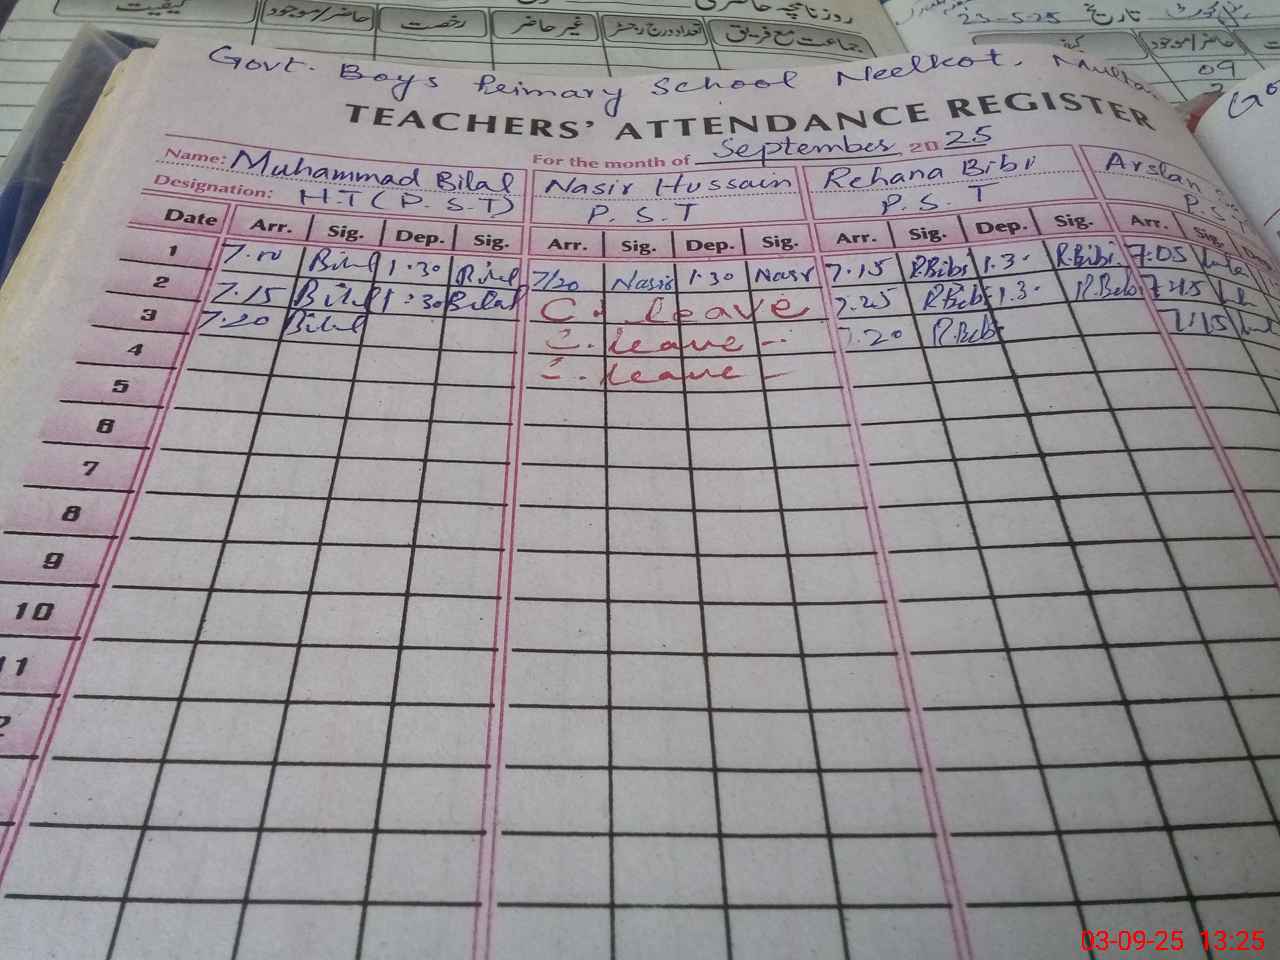 روزنامچہ حاضری
کیفیت حاضر/موجود رخصت غیر حاضر تعداد درج رجسٹر جماعت مع فریق
23-5-25 تاریخ
حاضر/موجود
09
Govt. Boys Primary School Neelkot.
TEACHERS' ATTENDANCE REGISTER
For the month of September 2025
Name: Muhammad Bilal Nasir Hussain Rehana Bibi Arslan
Designation: H.T (P.S.T) P.S.T P.S.T P.S.
Date Arr. Sig. Dep. Sig. Arr. Sig. Dep. Sig. Arr. Sig. Dep. Sig. Arr. Sig.
1 7.10 Bilal 1.30 Bilal 7/20 Nasir 1.30 Nasir 7.15 R.Bibi 1.30 R.Bibi 7:05
2 7.15 Bilal 1:30 Bilal C. leave 7.25 R.Bibi 1.30 R.Bibi 7:15
3 7.20 Bilal C. leave 7.20 R.Bibi 7:15
4 C. leave
5
6
7
8
9
10
11
03-09-25 13:25